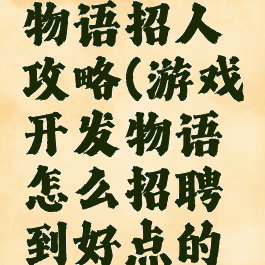 物语招人
攻略(游戏
开发物语
怎么招聘
到好点的